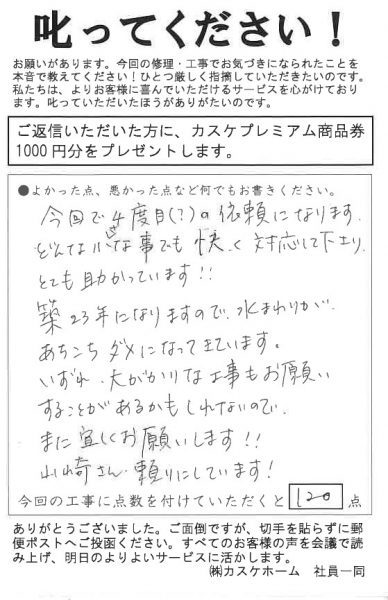 叱ってください！
お願いがあります。今回の修理・工事でお気づきになられたことを
本音で教えてください！ひとつ厳しく指摘していただきたいのです。
私たちは、よりお客様に喜んでいただけるサービスを心がけており
ます。叱っていただいたほうがありがたいのです。
ご返信いただいた方に、カスケプレミアム商品券
1000円分をプレゼントします。
●よかった点、悪かった点など何でもお書きください。
今回で4度目(?)の依頼になります。
どんな小さな事でも快く対応して下さり、
とても助かっています!!
築23年になりますので、水まわりが、
あちこちダメになってきています。
いずれ、大がかりな工事もお願い
することがあるかもしれないので、
また宜しくお願いします!!
山崎さん、頼りにしています!
今回の工事に点数を付けていただくと 120 点
ありがとうございました。ご面倒ですが、切手を貼らずに郵
便ポストへご投函ください。すべてのお客様の声を会議で読
み上げ、明日のよりよいサービスに活かします。
㈱カスケホーム 社員一同